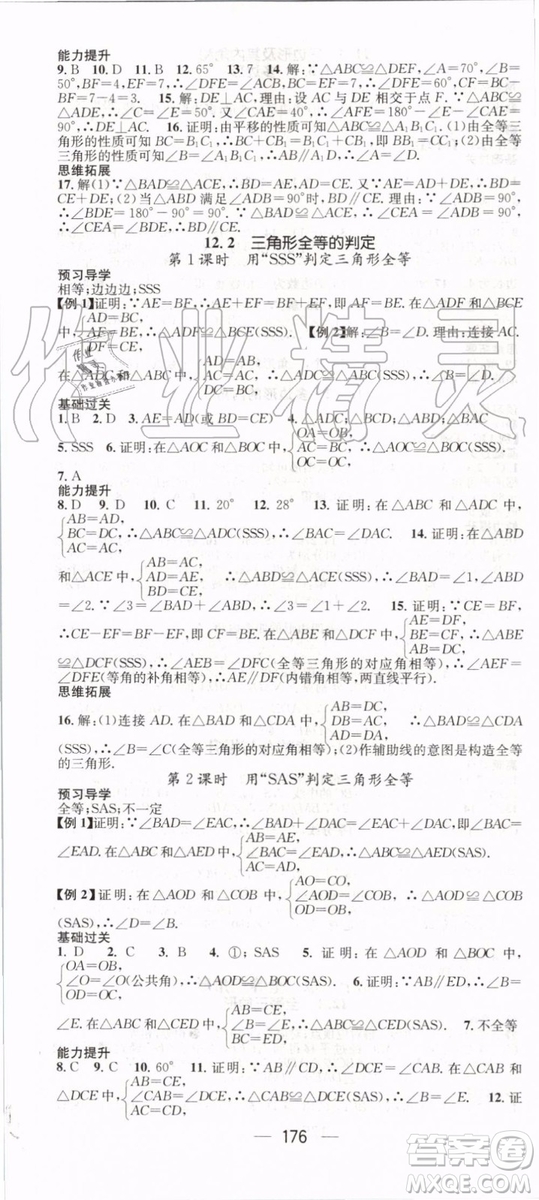 能力提升
9. B 10. D 11. B 12. 65° 13. 7 14. 解：∵△ABC≌△DEF，∠A=70°，∠B=
50°，BF=4，EF=7，∴∠D=∠A=70°，∠E=∠B=50°，BC=EF=7，∴CF=BC-
BF=7-4=3. 15. 解：DE⊥AC，理由：设 AC 与 DE 相交于点 F. ∵△ABC≌
△ADE，∴∠CAB=∠E=50°. 又∵∠CAE=40°，∴∠AFE=180°-∠E-∠CAE=
90°，∴DE⊥AC. 16. 证明：由平移的性质可知∠A=∠B₁A₁C₁. 由全等三
角形的性质可知 BC=B₁C₁，∴BC+CB₁=B₁C₁+CB₁，即
思维拓展
17. 解：(1)∵△BAD≌△ACE，∴BD=AE，AD=CE. ∵AE=AD+DE，∴BD=
CE+DE；(2)当△ABD 满足∠ADB=90°时，BD∥CE. 理由：∵∠ADB=90°，
∴∠BDE=180°-90°=90°. 又∵△BAD≌△ACE，∴∠CEA=∠ADB=90°，
∴∠CEA=∠BDE，∴BD∥CE.
12.2 三角形全等的判定
第 1 课时 用“SSS”判定三角形全等
预习导学
相等；边边边；SSS
【例 1】证明：∵AE=BF，∴AE+EF=BF+EF，即AF=BE. 在△ADF 和△BCE
中，{AD=BC，
DF=CE， 【例 2】解：∠B=∠D. 理由：连接 AC.
在△ADC和
基础过关
1. B 2. D 3. AE=AD(或 BD=CE) 4. △DCB；△ABD；△BAC
5. SSS 6. 证明：在△AOC 和△BOC 中，{
OC=OC，
7. A
能力提升
8. D 9. D 10. C 11. 20° 12. 28° 13. 证明：在△ABC 和△ADC 中，
{AB=AD，
BC=DC，∴△ABC≌△ADC(SSS)，∴∠BAC=∠DAC. 14. 证明：在△ABD
AC=AC，
和△ACE 中，{AB=AC，
AD=AE，∴△ABD≌△ACE(SSS)，∴∠BAD=∠1，∠ABD=
BD=CE，
∠2. ∵∠3=∠BAD+∠ABD，∴∠3=∠1+∠2. 15. 证明：∵CE=BF，
∴CE-EF=BF-EF，即 CF=BE. 在△ABE 和△DCF 中，{AE=DF，
BE=CF，∴△ABE
AB=DC，
≌△DCF(SSS)，∴∠AEB=∠DFC(全等三角形的对应角相等)，∴∠AEF=
∠DFE(等角的补角相等)，∴AE∥DF(内错角相等，两直线平行).
思维拓展
16. 解：(1)连接 AD. 在△BAD 和△CDA 中，{AB=DC，
DB=AC，∴△BAD≌△CDA
AD=DA，
(SSS)，∴∠B=∠C(全等三角形的对应角相等)；(2)作辅助线的意图是构造全等
的三角形.
第 2 课时 用“SAS”判定三角形全等
预习导学
全等；SAS；不一定
【例 1】证明：∵∠BAD=∠EAC，∴∠BAD+∠CAD=∠EAC+∠CAD，即∠BAC=
∠EAD. 在△ABC 和△AED 中，{AB=AE，
∠BAC=∠EAD，∴△ABC≌△AED(SAS).
AC=AD，
【例 2】证明：在△AOD 和△COB 中，{AO=CO，
∠AOD=∠COB，∴△AOD≌△COB
OD=OB，
(SAS)，∴∠D=∠B.
基础过关
1. D 2. C 3. C 4. ①；SAS 5. 证明：在△AOD 和△BOC 中，
{OA=OB，
∠O=∠O(公共角)，∴△AOD≌△BOC(SAS). 6. 证明：∵AB∥ED，∴∠B=
OD=OC，
∠E. 在△ABC 和△CED 中，{AB=CE，
∠B=∠E，∴△ABC≌△CED(SAS). 7. 不全等
BC=ED，
能力提升
8. C 9. C 10. 60° 11. 证明：∵AB∥CD，∴∠B=∠DCE. 在△ABC 和
△DCE 中，{AB=CE，
∠B=∠DCE，∴△ABC≌△DCE(SAS)，∴∠A=∠E. 12. 证
BC=CD，
— 176 —
作业精灵
答案圈